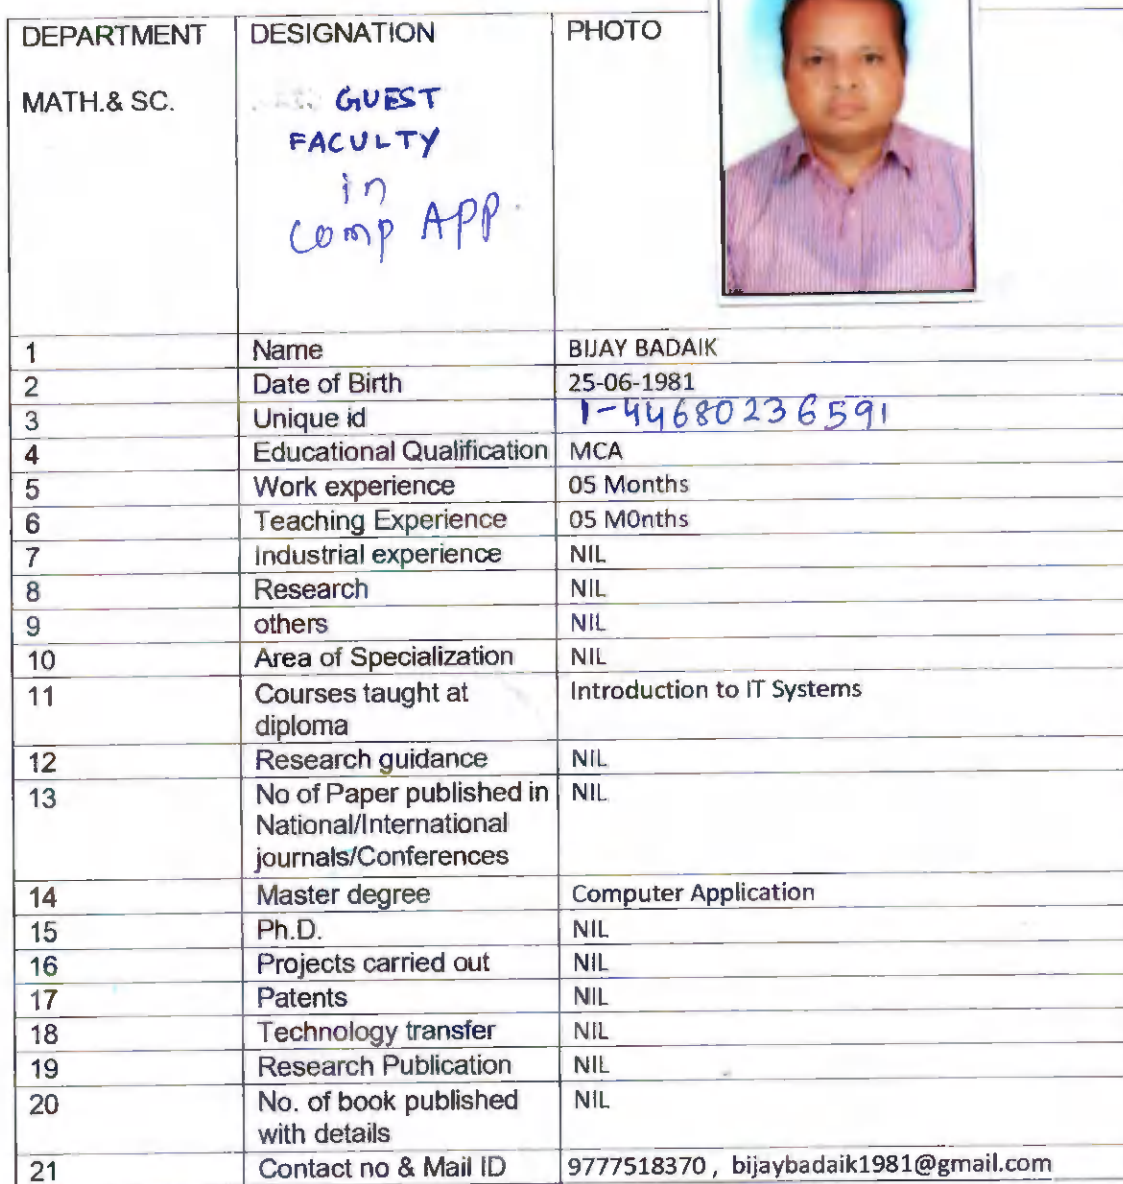 DEPARTMENT DESIGNATION PHOTO
MATH.& SC. GUEST
FACULTY
in
Comp APP.
1 Name BIJAY BADAIK
2 Date of Birth 25-06-1981
3 Unique id 1-44680236591
4 Educational Qualification MCA
5 Work experience 05 Months
6 Teaching Experience 05 M0nths
7 Industrial experience NIL
8 Research NIL
9 others NIL
10 Area of Specialization NIL
11 Courses taught at Introduction to IT Systems
diploma
12 Research guidance NIL
13 No of Paper published in NIL
National/International
journals/Conferences
14 Master degree Computer Application
15 Ph.D. NIL
16 Projects carried out NIL
17 Patents NIL
18 Technology transfer NIL
19 Research Publication NIL
20 No. of book published NIL
with details
21 Contact no & Mail ID 9777518370 , bijaybadaik1981@gmail.com